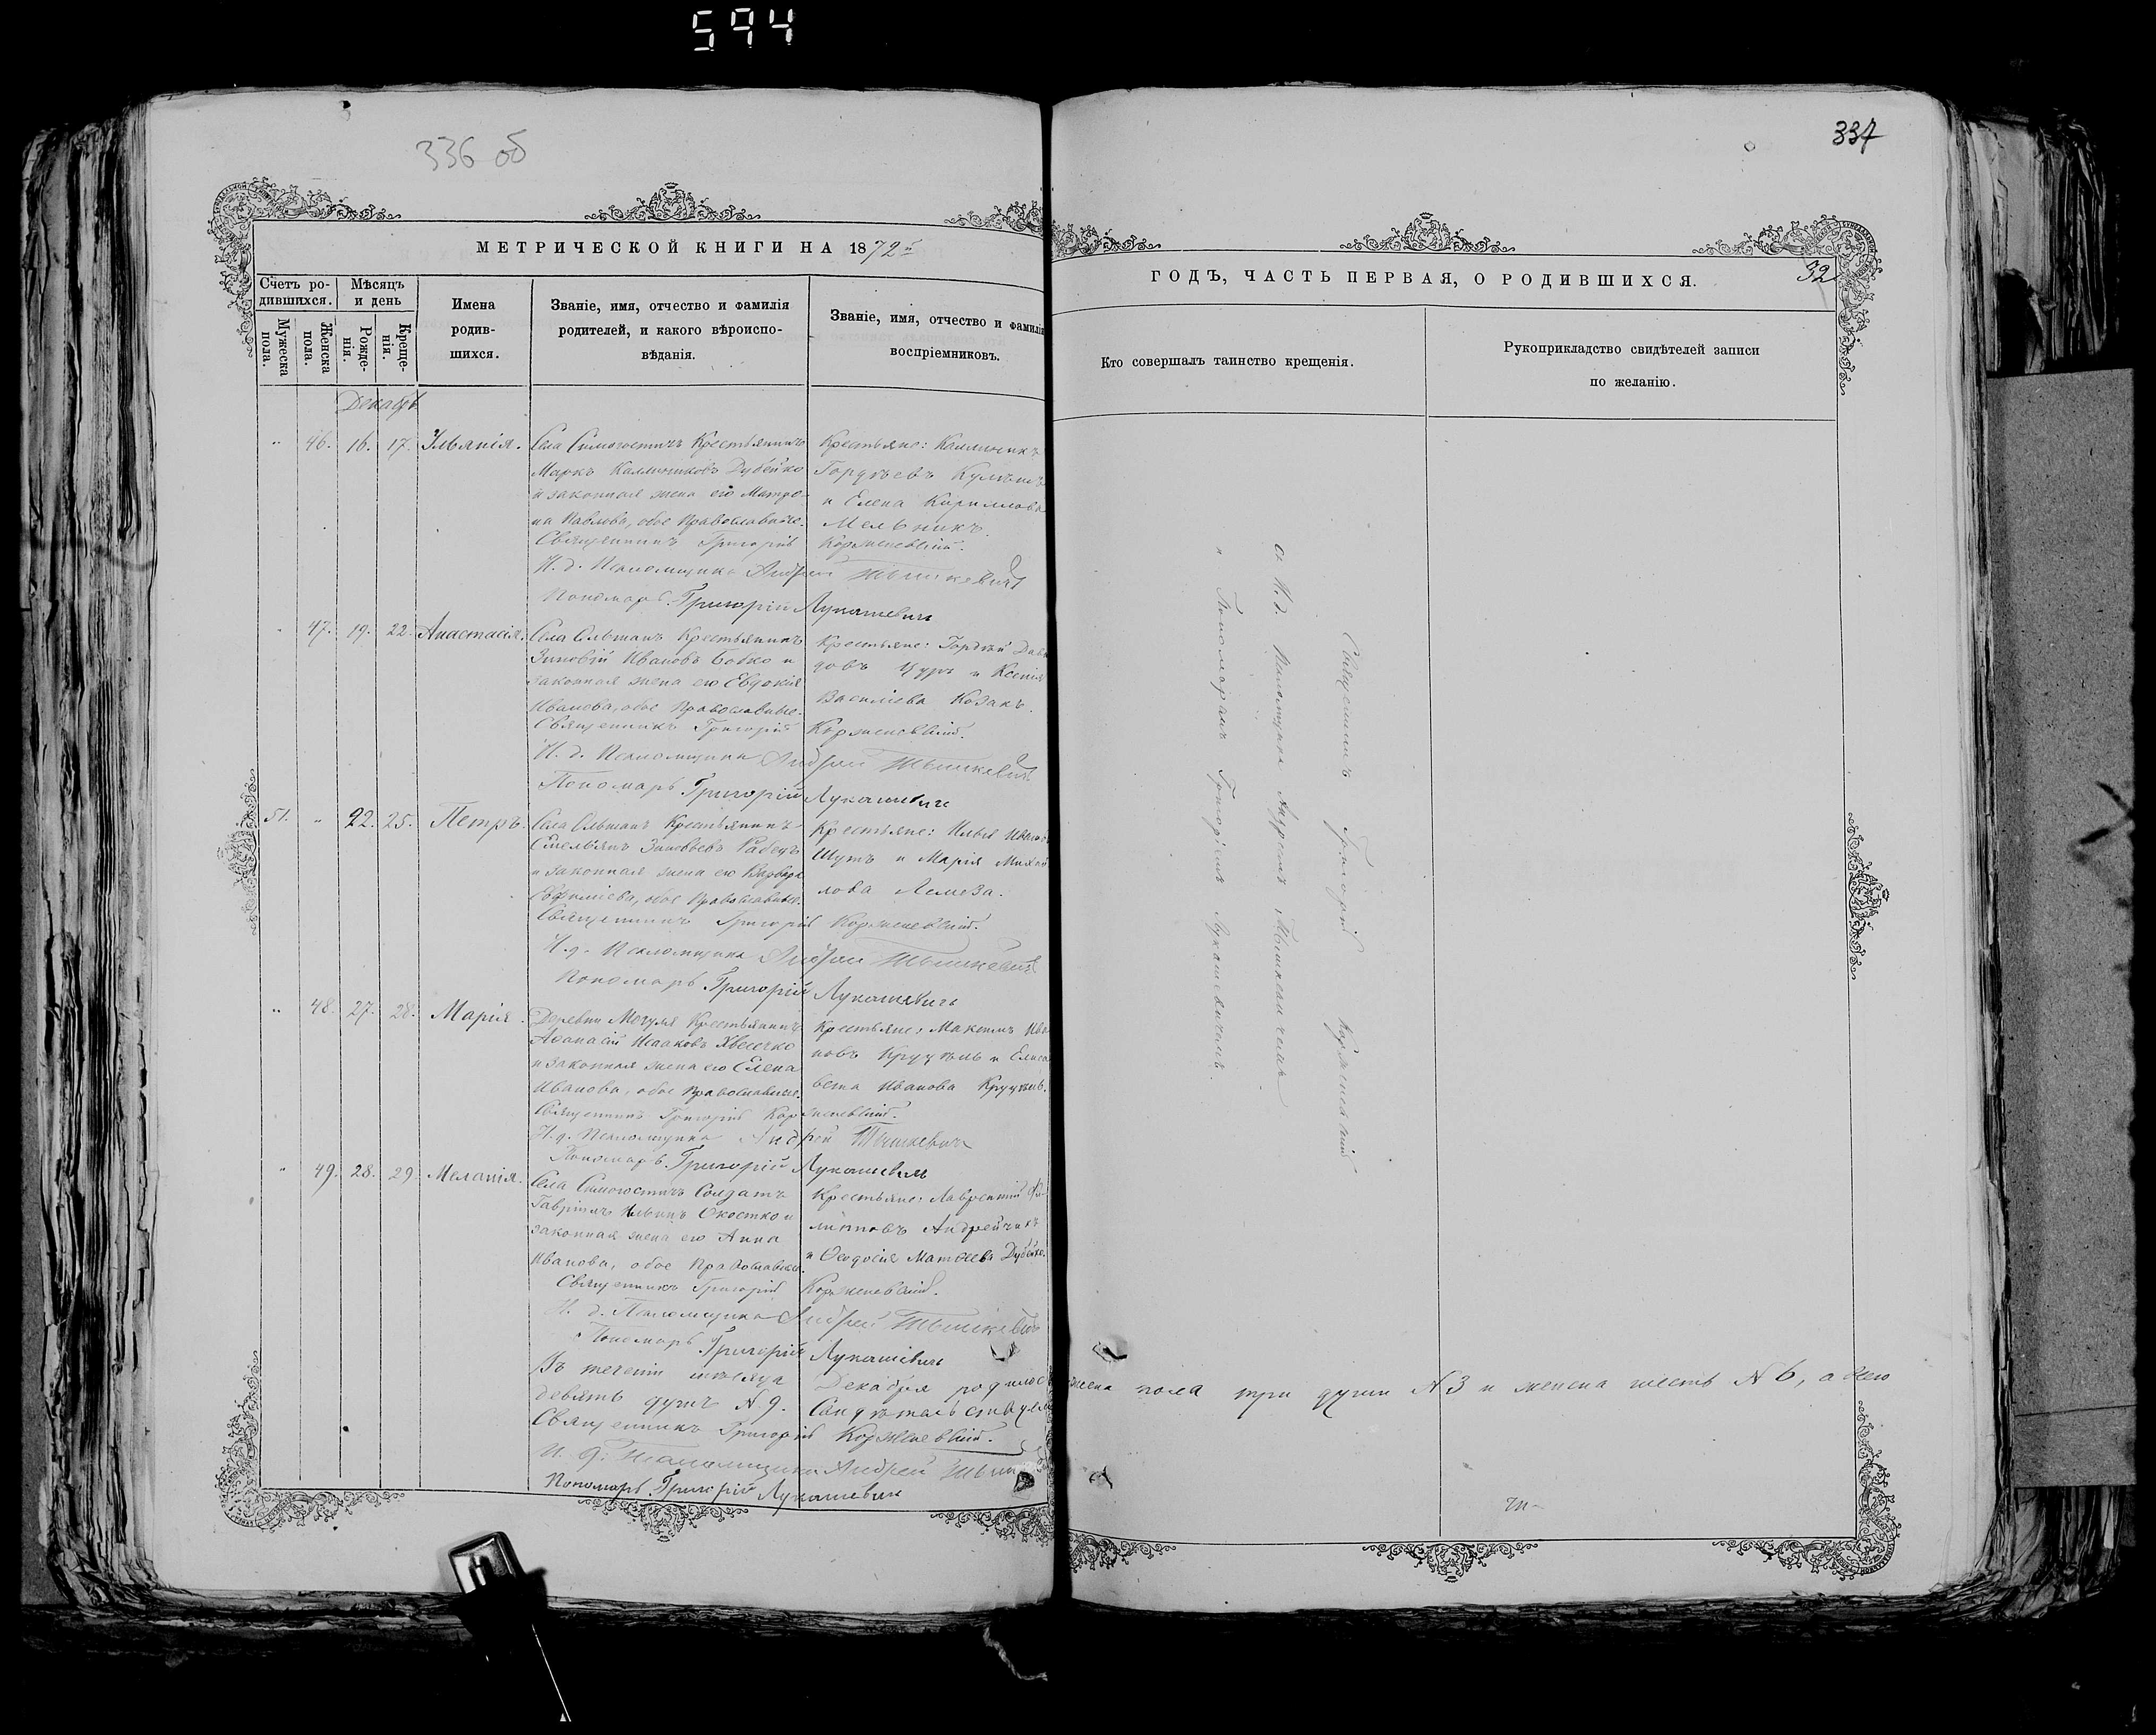 594
336 об
МЕТРИЧЕСКОЙ КНИГИ НА 1872й
Счетъ ро-
дившихся.
Мѣсяцъ
и день
Мужеска
пола.
Женска
пола.
Рожде-
нія.
Креще-
нія.
Имена
родив-
шихся.
Званіе, имя, отчество и фамилія
родителей, и какого вѣроиспо-
вѣданія.
Званіе, имя, отчество и фамилія
воспріемниковъ.
Декабрь
" 46. 16. 17. Ульянія.
Села Симоностичъ Крестьянинъ
Маркъ Каллиниковъ Дубейко
и законная жена его Матро-
на Павлова, обое Православные.
Крестьяне: Каллиникъ
Гордѣевъ
и Елена Кириллова
Мельникъ.
Священникъ Григорій Корженевскій.
И. д. Псаломщика Андрей Тышкевичъ
Пономарь Григорій Лукашевичъ
" 47. 19. 22. Анастасія.
Села Ольманъ Крестьянинъ
Зиновій Ивановъ Бобко и
законная жена его Евдокія
Иванова, обое Православные.
Крестьяне: Гордѣй Дави
довъ Цуръ и Ксенія
Василіева Козакъ.
Священникъ Григорій Корженевскій.
И. д. Псаломщика Андрей Тышкевичъ
Пономарь Григорій Лукашевичъ
51. " 22. 25. Петръ.
Села Ольманъ Крестьянинъ
Емельянъ Зиновьевъ Рабецъ
и законная жена его Варвара
обое Православные.
Крестьяне: Илья Иванов
Шутъ и Марія Михай
лова Лемеза.
Священникъ Григорій Корженевскій.
И. д. Псаломщика Андрей Тышкевичъ
Пономарь Григорій Лукашевичъ
" 48. 27. 28. Марія.
Деревни Крестьянинъ
Афанасій Исааковъ Хвесечко
и законная жена его Елена
Иванова, обое Православные.
Крестьяне: Максимъ Ива
новъ Круцкель и Елиса
вета Иванова Круцкель.
Священникъ Григорій Корженевскій.
И. д. Псаломщика Андрей Тышкевичъ
Пономарь Григорій Лукашевичъ
" 49. 28. 29. Меланія.
Села Симоностичъ Солдатъ
Гавріилъ Ильинъ Скостко и
законная жена его Анна
Иванова, обое Православные.
Крестьяне: Лаврентій Фи
липповъ Андрейчикъ
и Ѳеодосія Матѳеева Дубейко.
Священникъ Григорій Корженевскій.
И. д. Псаломщика Андрей Тышкевичъ
Пономарь Григорій Лукашевичъ
Въ теченіи мѣсяца Декабря родилось
девять душъ № 9.
Священникъ Григорій Корженевскій.
И. д. Псаломщика Андрей
Пономарь Григорій Лукашевичъ
337
ГОДЪ, ЧАСТЬ ПЕРВАЯ, О РОДИВШИХСЯ.
32
Кто совершалъ таинство крещенія.
Рукоприкладство свидѣтелей записи
по желанію.
Священникъ Григорій Корженевскій
съ И. д. Псаломщика Андреемъ Тышкевичемъ
и Пономаремъ Григоріемъ Лукашевичемъ.
жеска пола три души № 3 и женска шесть № 6, а всего